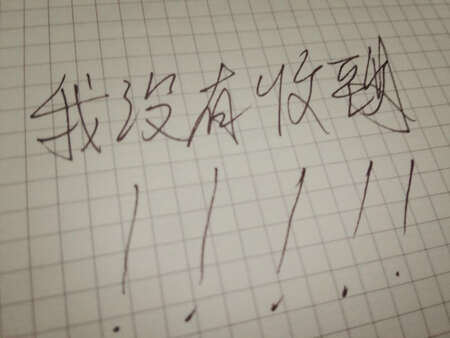 我没有收到
!!!!!